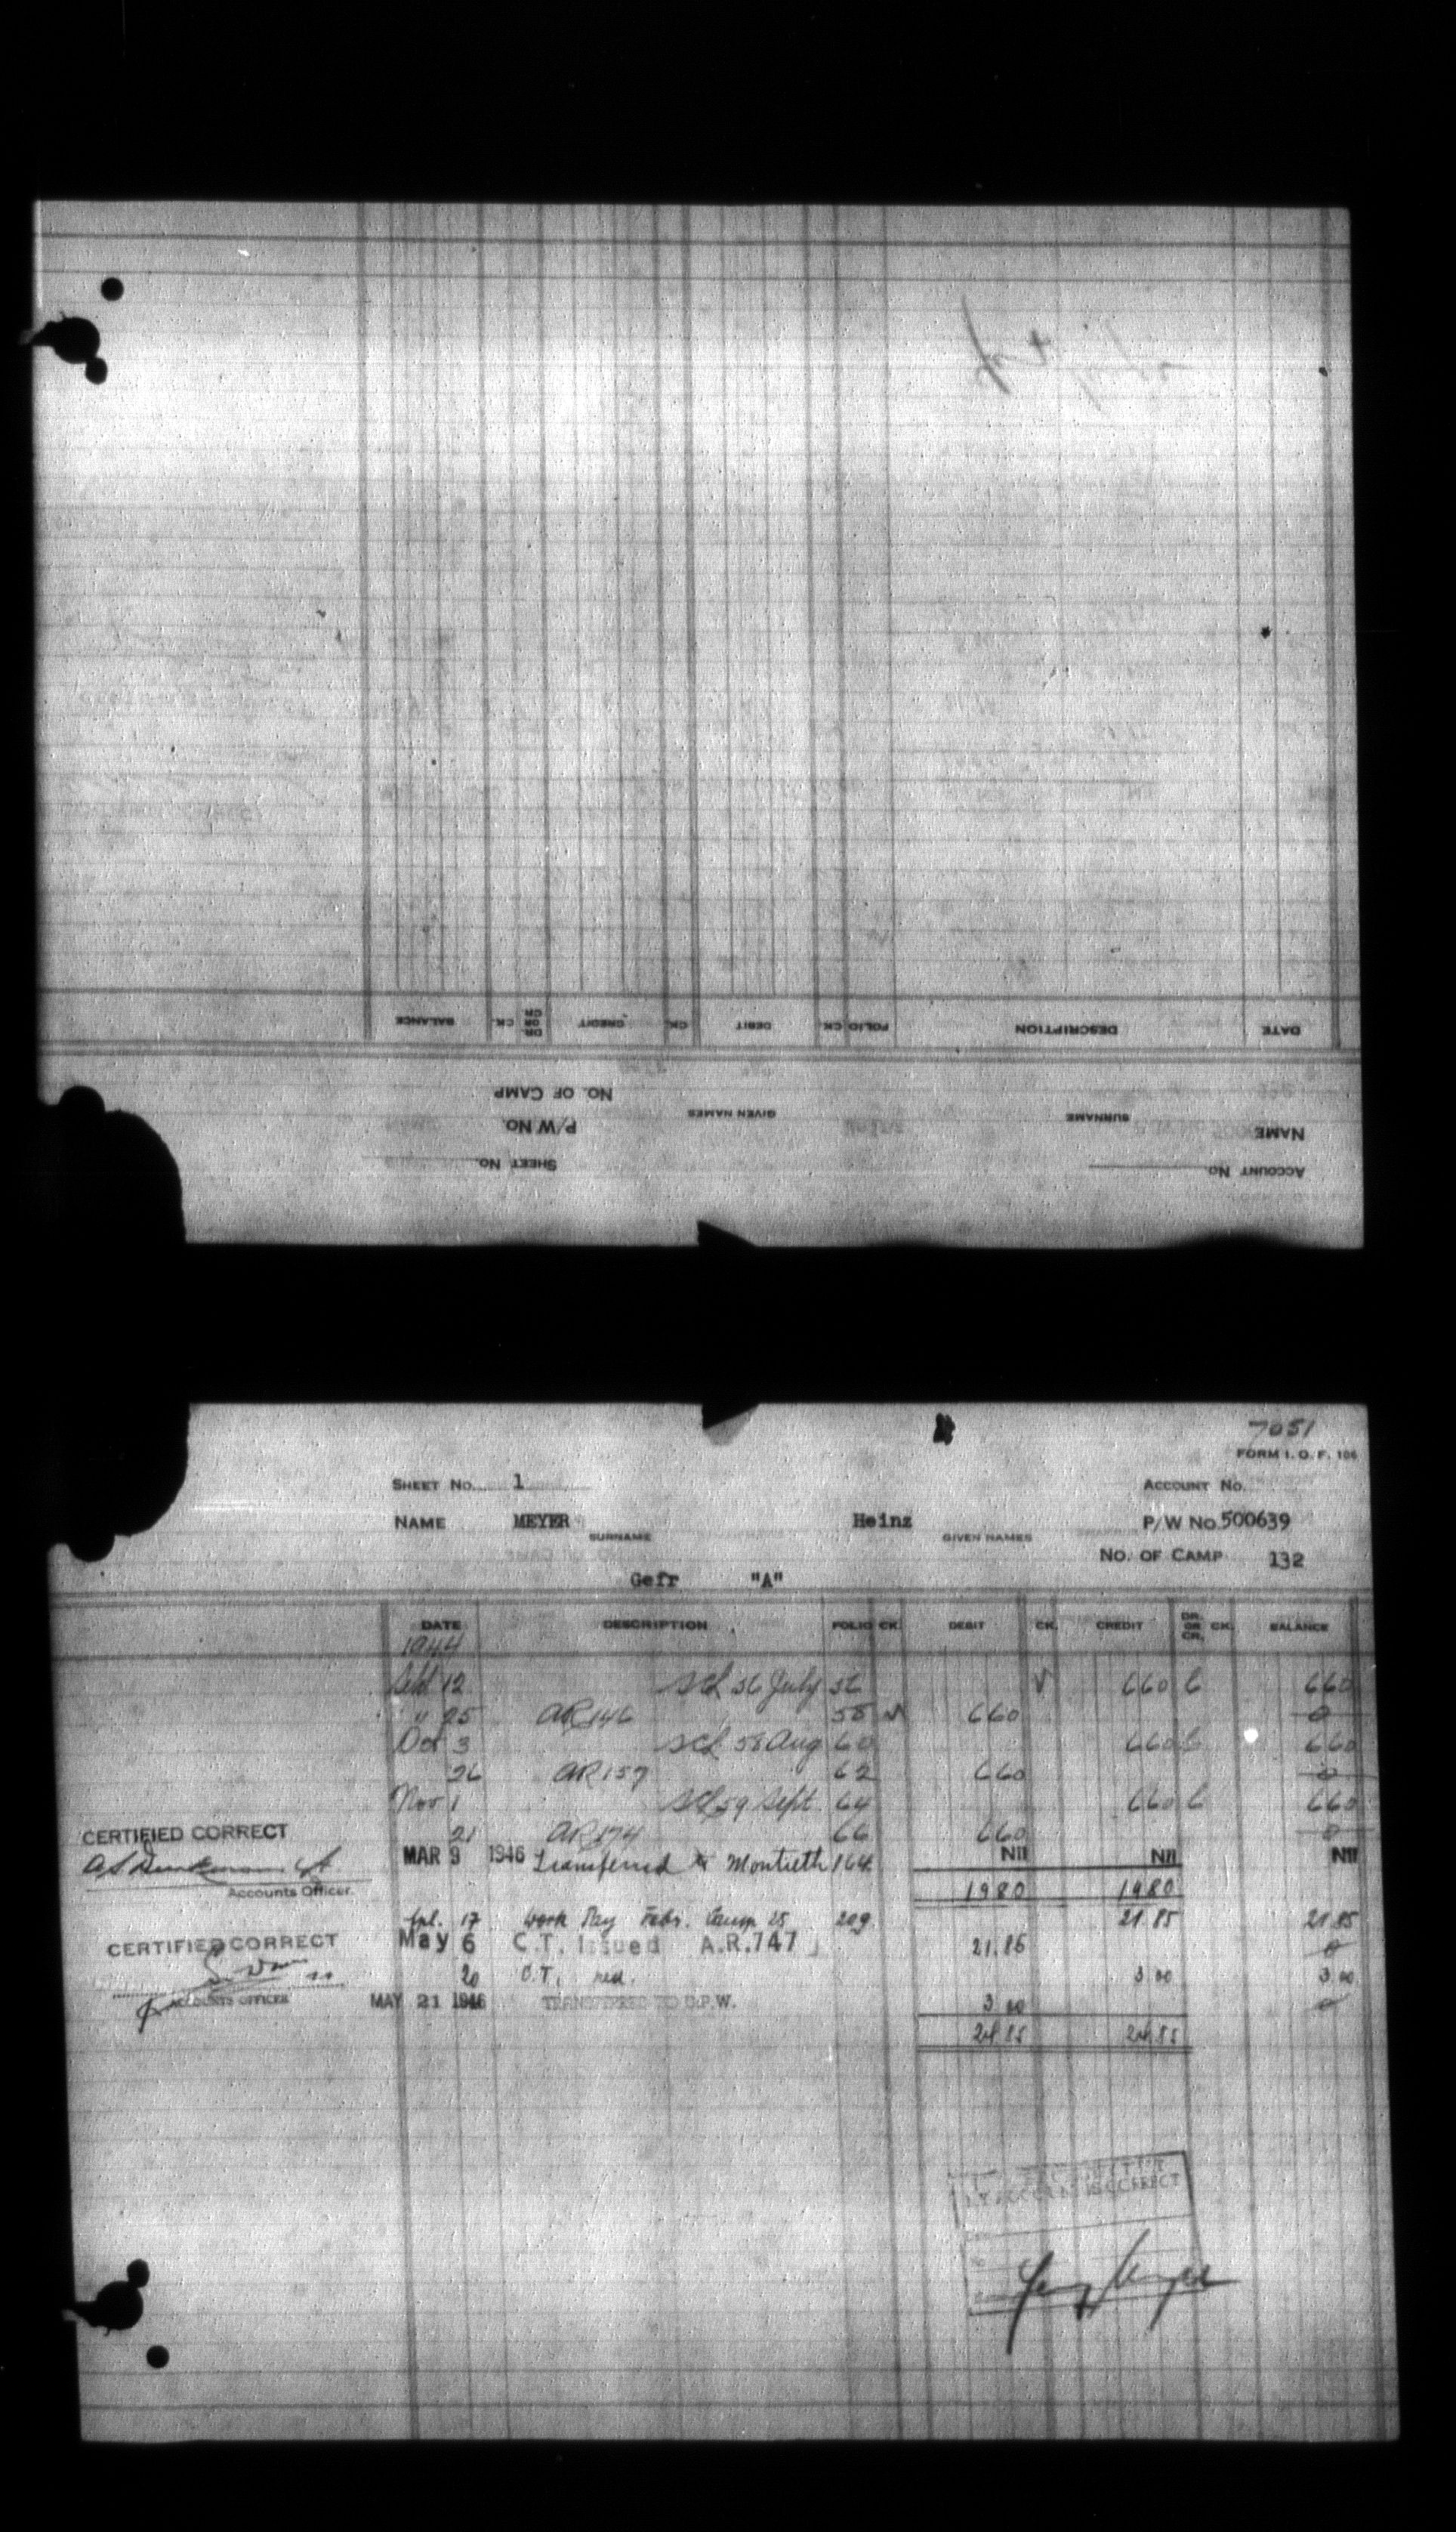 BALANCE CK. DR. OR CR. CREDIT CK. DEBIT CK. FOLIO DESCRIPTION DATE
NO. OF CAMP
P/W No. GIVEN NAMES SURNAME NAME
SHEET No. ACCOUNT No.
7051
FORM I.O.F. 106
SHEET No. 1 ACCOUNT No.
NAME MEYER Heinz P/W No. 500639
SURNAME GIVEN NAMES
NO. OF CAMP 132
Gefr "A"
DATE DESCRIPTION FOLIO CK. DEBIT CK. CREDIT DR. OR CR. CK. BALANCE
1944
Sept 12 56 July 56 √ 660 C 660
" 25 AR 146 58 √ 660 0
Oct 3 58 Aug 60 660 C 660
26 AR 157 62 660 0
Nov 1 59 Sept. 64 660 C 660
21 AR 174 66 660 0
CERTIFIED CORRECT
MAR 9 1946 Transferred to Montieth 164 Nil Nil Nil
Accounts Officer.
1980 1980
Apl. 17 Work Pay Febr. Camp 25 209 21.85 21.85
CERTIFIED CORRECT
May 6 C.T. Issued A.R.747 21.85 0
20 C.T. 3.00 3.00
ACCOUNTS OFFICER
MAY 21 1946 TRANSFERRED TO D.P.W. 3.00 0
24.85 24.85
CORRECT